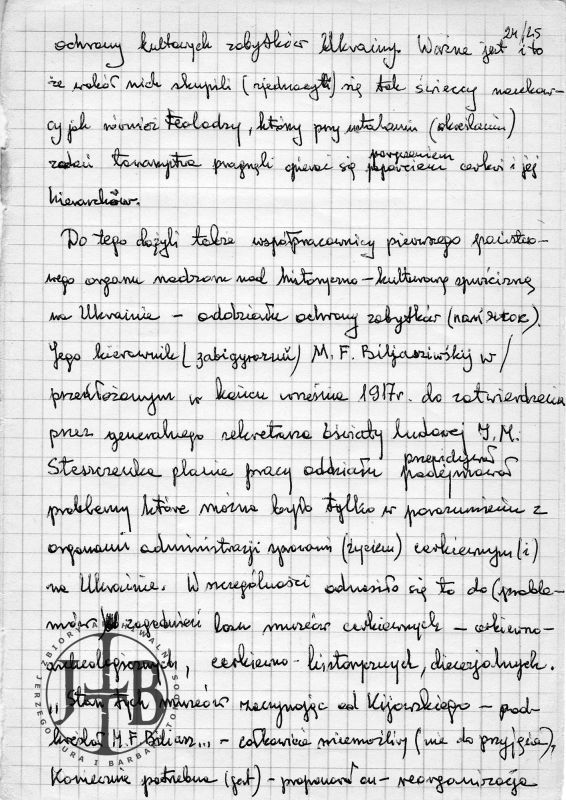 24/45
ochrony kultowych zabytków Ukrainy. Ważne jest i to
że wokół nich skupili (zjednoczyli) się tak świeccy naukow-
cy jak również teolodzy, którzy przy ustalaniu (określaniu)
zadań towarzystwa pragnęli opierać się
poparciem cerkwi i jej
hierarchów.
Do tego dążyli także współpracownicy pierwszego państwo-
wego organu nadzoru nad historyczno-kulturową spuścizną
na Ukrainie - oddziału ochrony zabytków
Jego kierownik M. F. Biljasziwśkij w
przedłożonym w końcu września 1917r. do zatwierdzenia
przez generalnego sekretarza oświaty ludowej I. M.
Steszczenka planie pracy oddziału
przewidywał
podejmował
problemy które można było tylko w porozumieniu z
organami administracji sprawami (życiem) cerkiewnym (i)
na Ukrainie. W szczególności odnosiło się to do (proble-
mów) zagadnień losu muzeów cerkiewnych - cerkiewno-
archeologicznych, cerkiewno-historycznych, diecezjalnych.
"Stan tych muzeów zaczynając od Kijowskiego - pod-
kreślał M.F. Biliasz... - całkowicie niemożliwy (nie do przyjęcia),
Koniecznie potrzebna (jest) - proponował on - reorganizacja
ZBIORY
JERZEGO
BARBARY
JTB